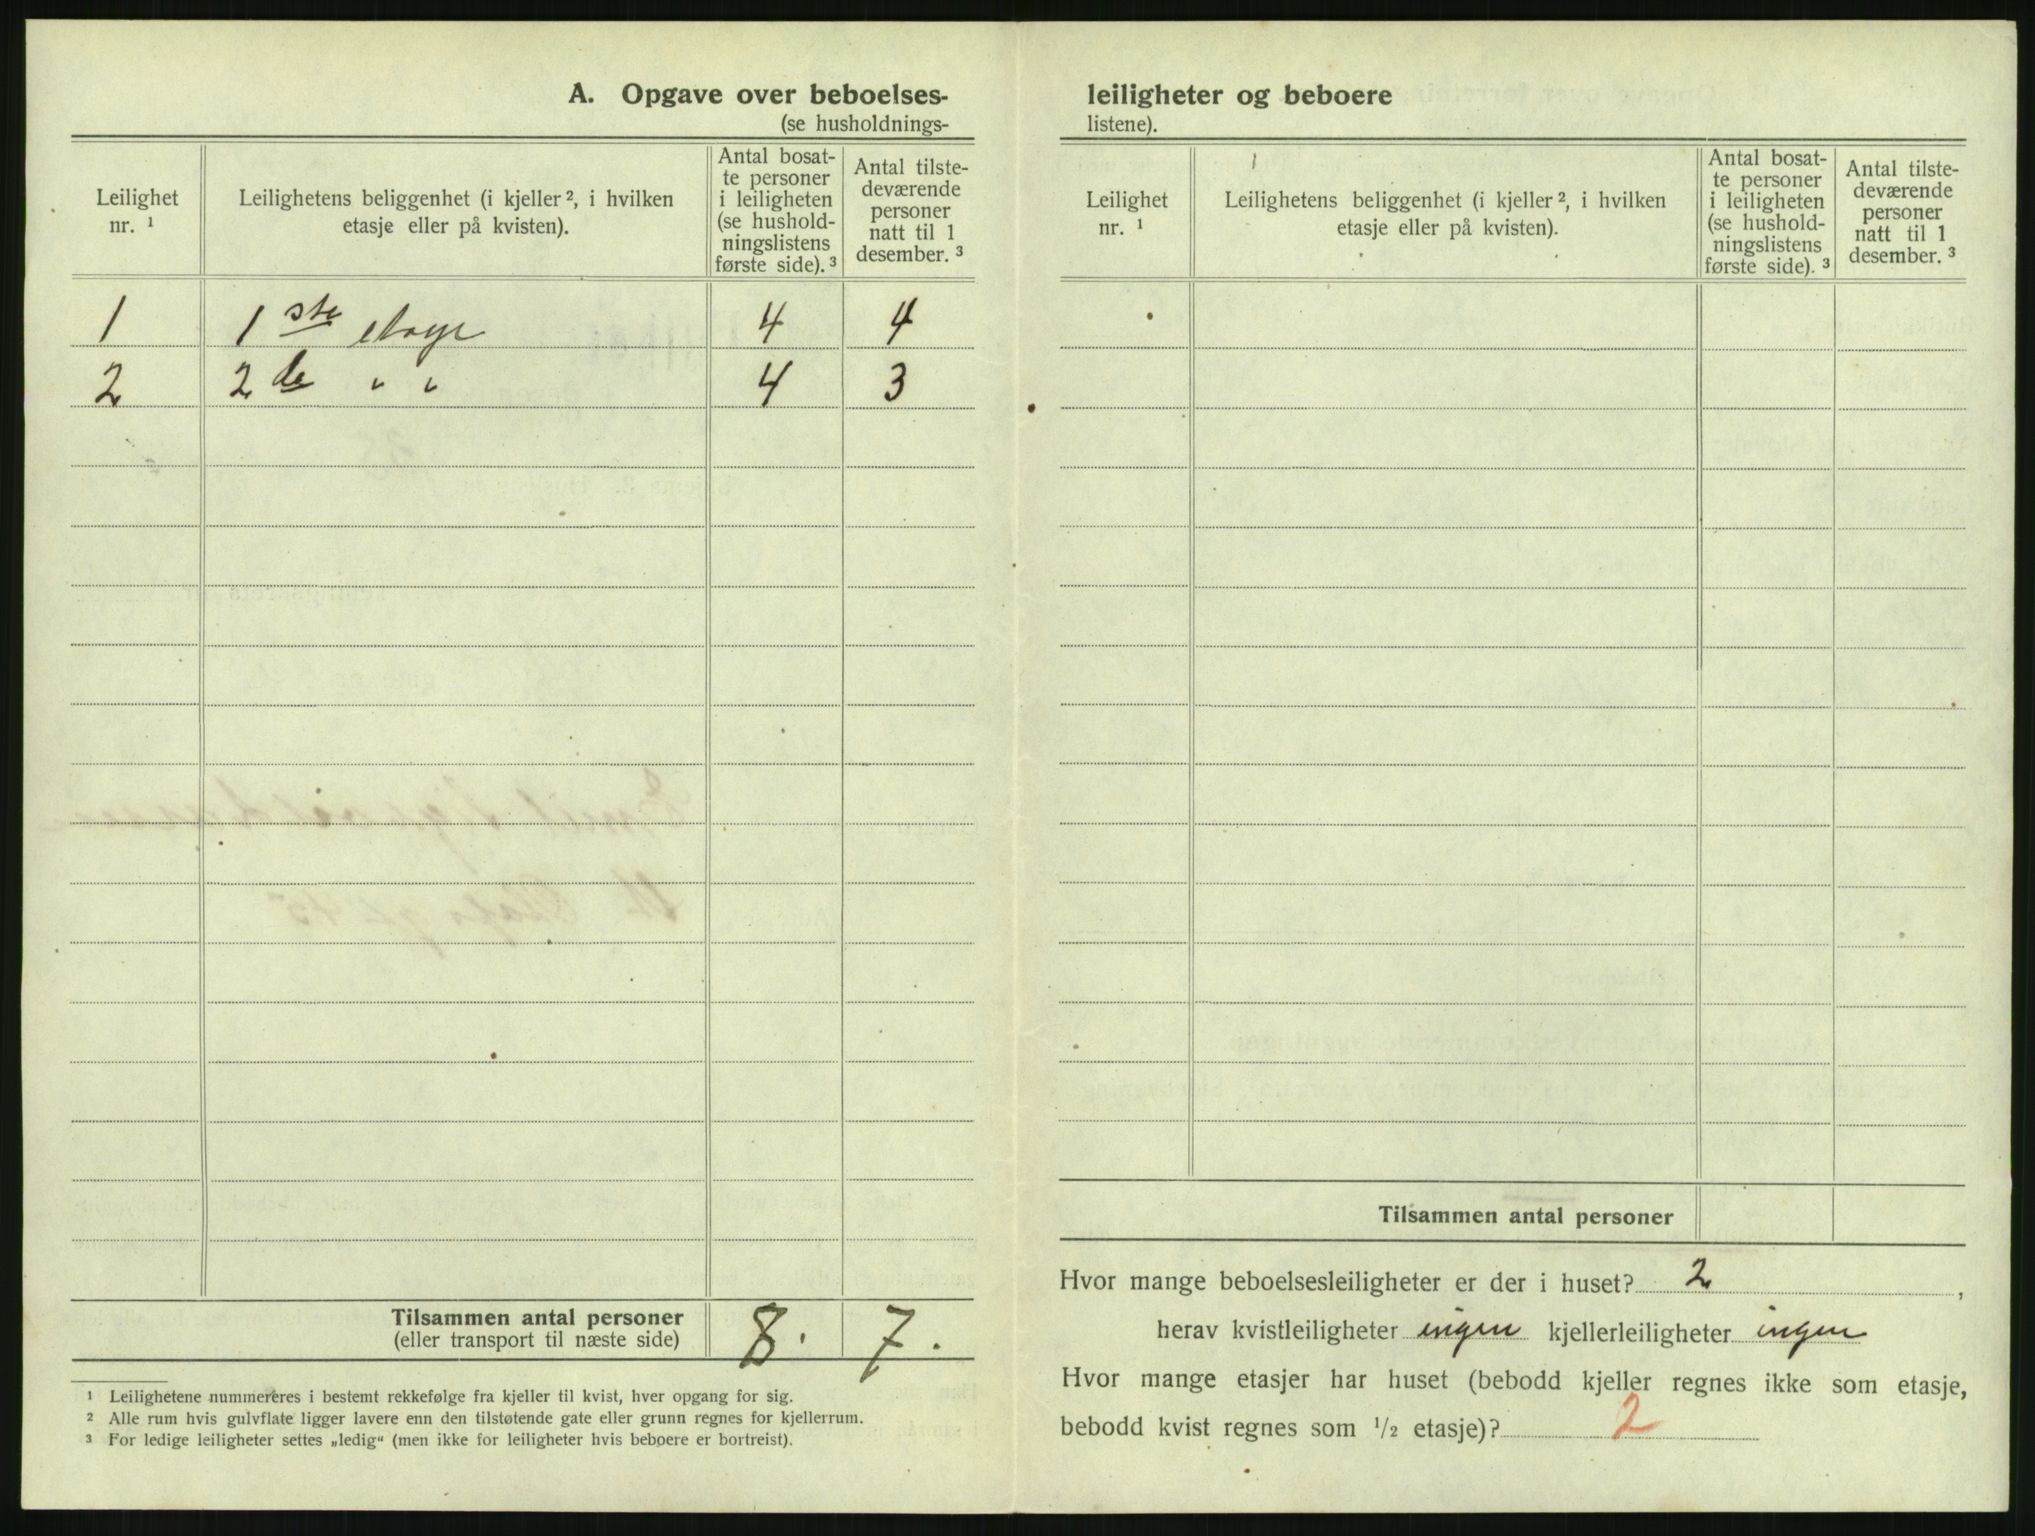 A. Opgave over beboelses-
(se husholdnings-
Leilighet
nr. ¹
Leilighetens beliggenhet (i kjeller ², i hvilken
etasje eller på kvisten).
Antal bosat-
te personer
i leiligheten
(se hushold-
ningslistens
første side). ³
Antal tilste-
deværende
personer
natt til 1
desember. ³
1 1ste etage 4 4
2 2de " " 4 3
Tilsammen antal personer
(eller transport til næste side)
8. 7.
¹ Leilighetene nummereres i bestemt rekkefølge fra kjeller til kvist, hver opgang for sig.
² Alle rum hvis gulvflate ligger lavere enn den tilstøtende gate eller grunn regnes for kjellerrum.
³ For ledige leiligheter settes „ledig“ (men ikke for leiligheter hvis beboere er bortreist).
leiligheter og beboere
listene).
Leilighet
nr. ¹
Leilighetens beliggenhet (i kjeller ², i hvilken
etasje eller på kvisten).
Antal bosat-
te personer
i leiligheten
(se hushold-
ningslistens
første side). ³
Antal tilste-
deværende
personer
natt til 1
desember. ³
Tilsammen antal personer
Hvor mange beboelsesleiligheter er der i huset? 2,
herav kvistleiligheter ingen kjellerleiligheter ingen
Hvor mange etasjer har huset (bebodd kjeller regnes ikke som etasje,
bebodd kvist regnes som ½ etasje)? 2